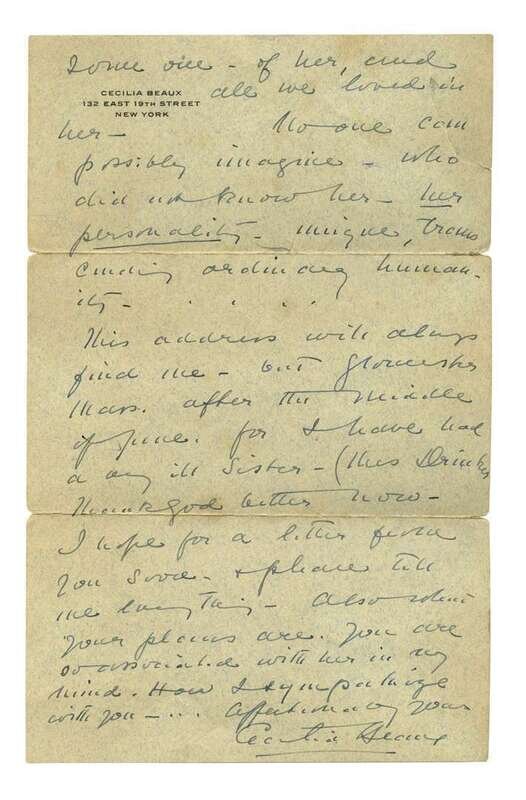 CECILIA BEAUX
132 EAST 19TH STREET
NEW YORK
Some one - of her, and
all we loved in
her - No one can
possibly imagine - who
did not know her - her
personality - unique, trans
cending ordinary human-
ity - . . .
This address will always
find me - but Gloucester
Mass. after the middle
of June. for I have had
a very ill Sister - (Mrs Drinker
Thank God better now -
I hope for a letter from
you soon - & please tell
me everything - Also what
your plans are. You are
so associated with her in my
mind. How I sympathize
with you - ... affectionately yours
Cecilia Beaux